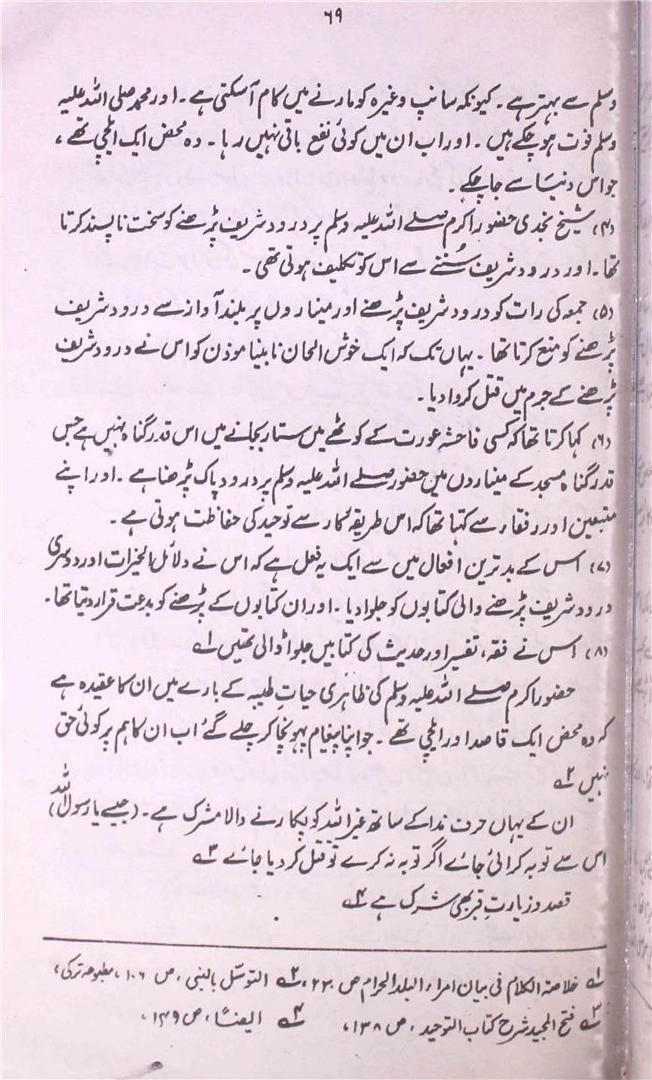 ۶۹
وسلم سے بہتر ہے۔ کیونکہ سانپ وغیرہ کو مارنے میں کام آسکتی ہے۔ اور محمد صلی اللہ علیہ
وسلم فوت ہو چکے ہیں۔ اور اب ان میں کوئی نفع باقی نہیں رہا۔ وہ محض ایک ایلچی تھے،
جو اس دنیا سے جا چکے۔
(۴) شیخ نجدی حضور اکرم صلے اللہ علیہ وسلم پر درود شریف پڑھنے کو سخت ناپسند کرتا
تھا۔ اور درود شریف سُننے سے اس کو تکلیف ہوتی تھی۔
(۵) جمعہ کی رات کو درود شریف پڑھنے اور میناروں پر بلند آواز سے درود شریف
پڑھنے کو منع کرتا تھا۔ یہاں تک کہ ایک خوش الحان نابینا موذن کو اس نے درود شریف
پڑھنے کے جرم میں قتل کروا دیا۔
(۶) کہا کرتا تھا کہ کسی فاحشہ عورت کے کوٹھے میں ستار بجانے میں اس قدر گناہ نہیں ہے جس
قدر گناہ مسجد کے میناروں میں حضور صلے اللہ علیہ وسلم پر درود پاک پڑھنا ہے۔ اور اپنے
متبعین اور رفقاء سے کہتا تھا کہ اس طریقہ کار سے توحید کی حفاظت ہوتی ہے۔
(۷) اس کے بدترین افعال میں سے ایک یہ فعل ہے کہ اس نے دلائل الخیرات اور دوسری
درود شریف پڑھنے والی کتابوں کو جلوا دیا۔ اور ان کتابوں کے پڑھنے کو بدعت قرار دیتا تھا۔
(۸) اس نے فقہ، تفسیر اور حدیث کی کتابیں جلوا ڈالی تھیں ۱؎
حضور اکرم صلے اللہ علیہ وسلم کی ظاہری حیاتِ طیبہ کے بارے میں ان کا عقیدہ ہے
کہ وہ محض ایک قاصد اور ایلچی تھے۔ جو اپنا پیغام پہونچا کر چلے گئے اب ان کا ہم پر کوئی حق
نہیں ۲؎
ان کے یہاں حرف ندا کے ساتھ غیر اللہ کو پکارنے والا مشرک ہے۔ (جیسے یا رسول اللہ)
اس سے توبہ کرائی جائے اگر توبہ نہ کرے تو قتل کر دیا جائے ۳؎
قصد و زیارتِ قبر بھی شرک ہے ۴؎
۱؎ خلاصۃ الکلام فی بیان امراء البلد الحرام ص ۲۳۰، ۲؎ التوسّل بالنبی، ص ۱۰۶، مطبوعہ ترکی،
۳؎ فتح المجید شرح کتاب التوحید، ص ۱۳۸، ۴؎ ایضاً، ص ۱۴۹،